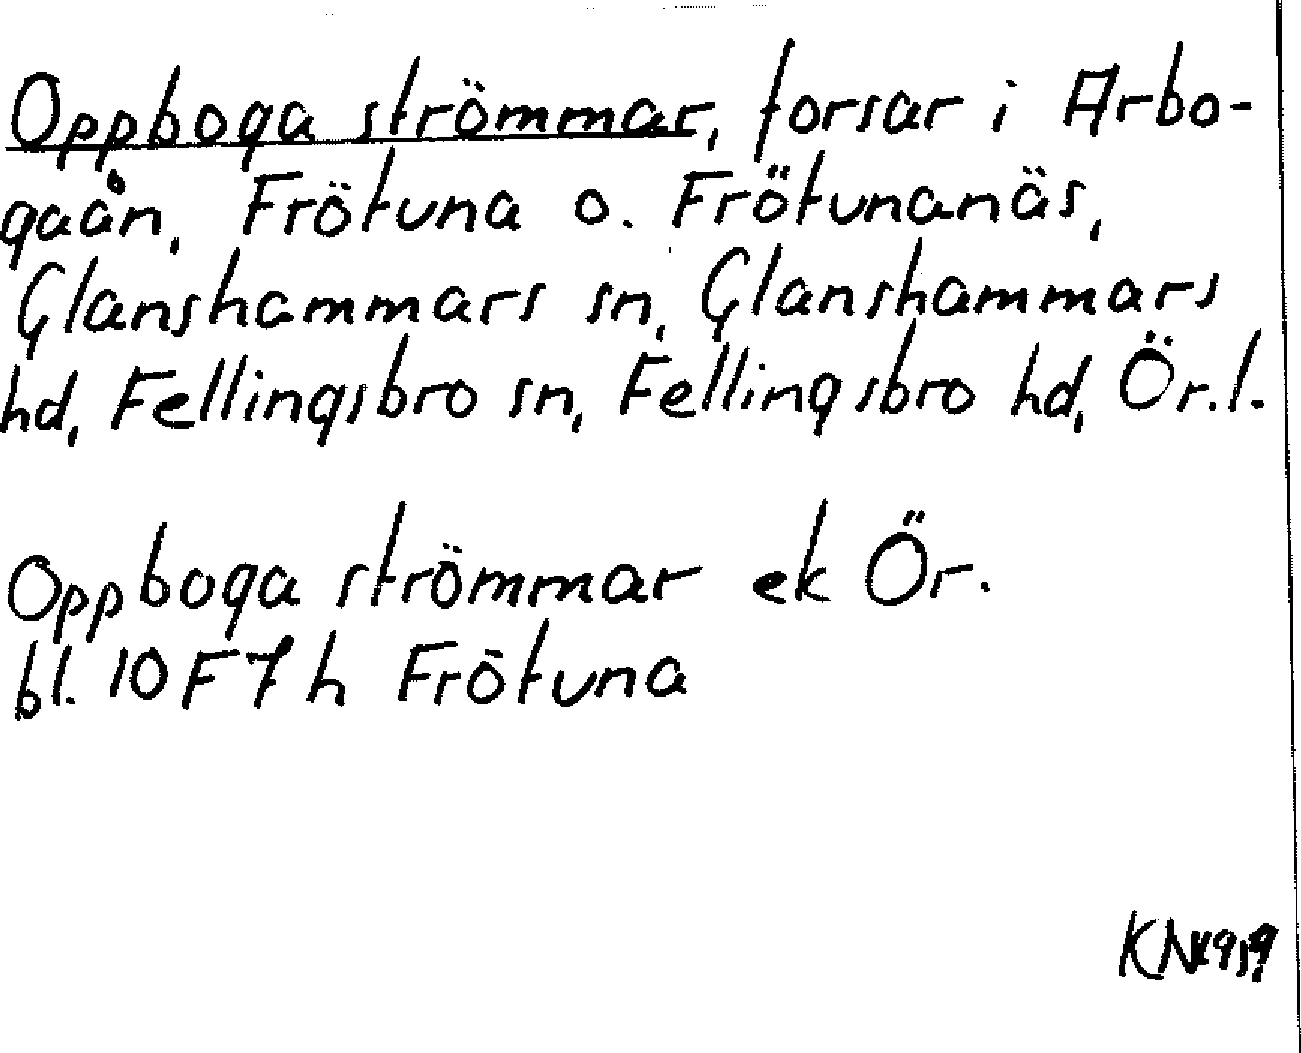 Oppboga strömmar, forsar i Arbo-
gaån, Frötuna o. Frötunanäs,
Glanshammars sn, Glanshammars
hd, Fellingsbro sn, Fellingsbro hd, Ör.l.
Oppboga strömmar ek Ör.
bl. 10 F 7 h Frötuna